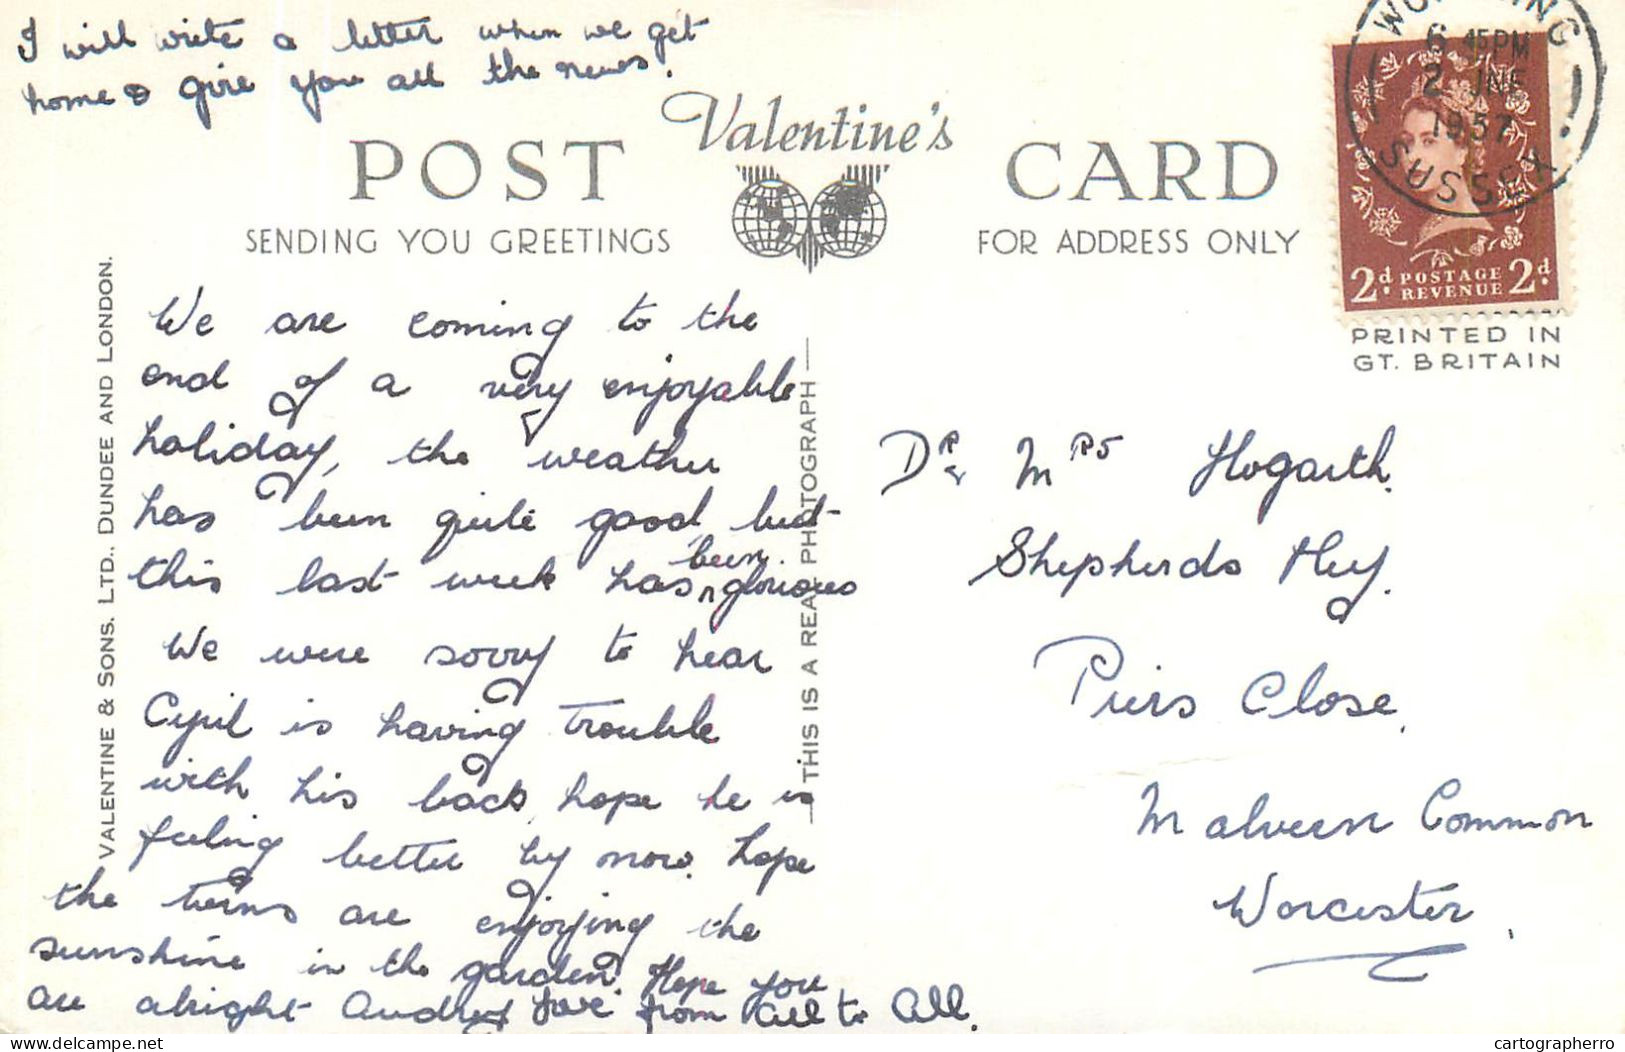 I will write a letter when we get
home & give you all the news.
Valentine's
POST CARD
SENDING YOU GREETINGS
FOR ADDRESS ONLY
WORTHING
6 45PM
2 JNE
1957
SUSSEX
2d. POSTAGE REVENUE 2d.
PRINTED IN
GT. BRITAIN
VALENTINE & SONS. LTD., DUNDEE AND LONDON.
THIS IS A REAL PHOTOGRAPH
We are coming to the
end of a very enjoyable
holiday, the weather
has been quite good, but
this last week has been glorious
We were sorry to hear
Cyril is having trouble
with his back, hope he is
feeling better by now. hope
the twins are enjoying the
sunshine in the garden. Hope you
are alright Audrey love from all to All.
Dr & Mrs Hogarth.
Shepherds Hey.
Piers Close.
Malvern Common
Worcester.
delcampe.net
cartographerro